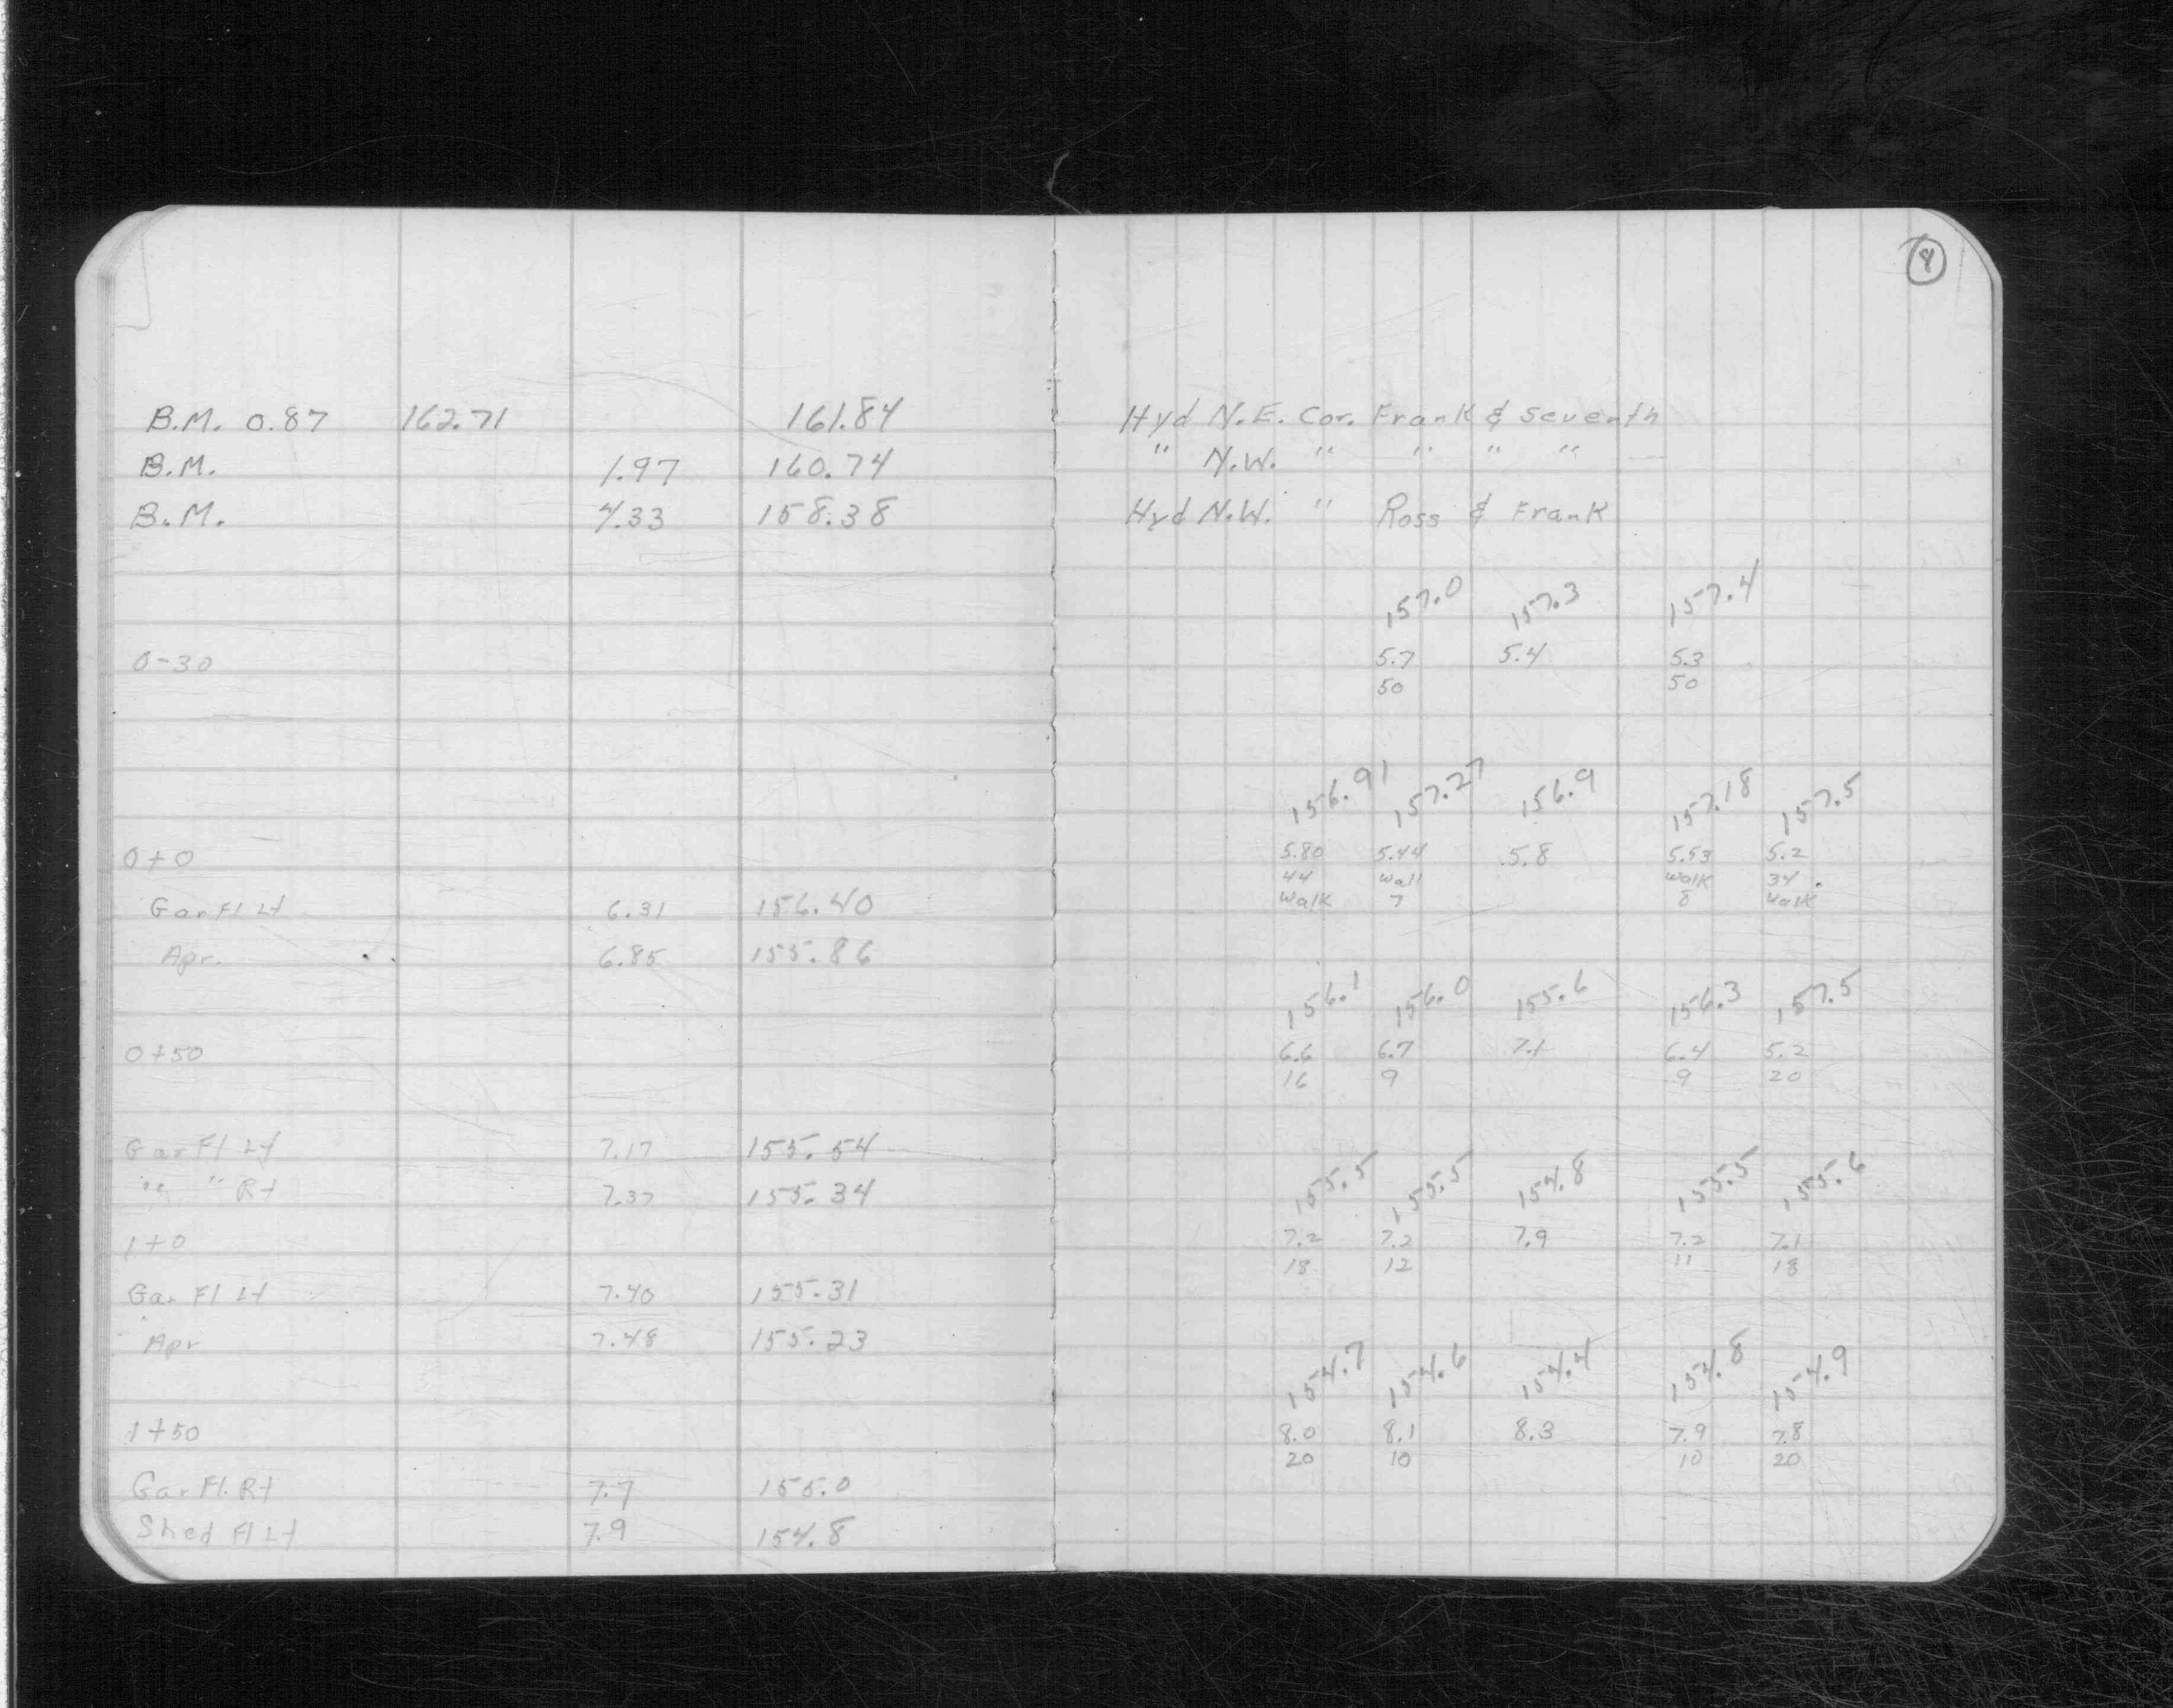 8
B.M. 0.87 162.71 161.84 Hyd N.E. Cor. Frank & Seventh
B.M. 1.97 160.74 " N.W. " " " "
B.M. 4.33 158.38 Hyd N.W. " Ross & Frank
157.0 157.3 157.4
0-30 5.7 5.4 5.3
50 50
156.91 157.27 156.9 157.18 157.5
0+0 5.80 5.44 5.8 5.53 5.2
44 wall walk 34
Gar Fl Lt 6.31 156.40 walk 7 8 walk
Apr. 6.85 155.86
156.1 156.0 155.6 156.3 157.5
0+50 6.6 6.7 7.1 6.4 5.2
16 9 9 20
Gar Fl Lt 7.17 155.54
" " Rt 7.37 155.34 155.5 155.5 154.8 155.5 155.6
1+0 7.2 7.2 7.9 7.2 7.1
18 12 11 18
Gar Fl Lt 7.40 155.31
Apr 7.48 155.23
154.7 154.6 154.4 154.8 154.9
1+50 8.0 8.1 8.3 7.9 7.8
20 10 10 20
Gar Fl. Rt 7.7 155.0
Shed Fl Lt 7.9 154.8